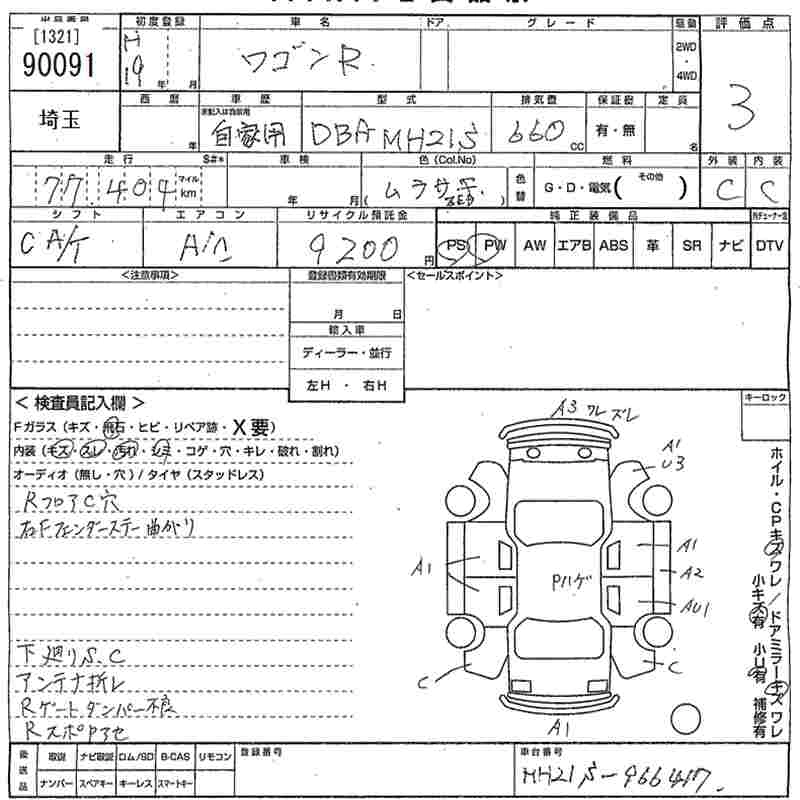 [1321]
90091
埼玉
初度登録
H
19
年 月
車名
ワゴンR
ドア
グレード
駆動
2WD
・
4WD
評価点
3
西暦
年
車歴
未記入は自家用
自家用
型式
DBA MH21S
排気量
660 CC
保証書
有・無
定員
名
走行
77,404
マイル
km
S#*
車検
年 月
色 (Col.No)
( ムラサキ )
色替
燃料
G・D・電気 ( その他 )
外装
C
内装
C
シフト
C A/T
エアコン
リサイクル預託金
9200 円
純正装備品
PS PW AW エアB ABS 革 SR ナビ DTV
<注意事項>
登録書類有効期限
月 日
輸入車
ディーラー・並行
左H ・ 右H
<セールスポイント>
<検査員記入欄>
Fガラス (キズ・飛石・ヒビ・リペア跡・X要)
内装 (キズ・スレ・汚れ・シミ・コゲ・穴・キレ・破れ・割れ)
オーディオ (無し・穴) / タイヤ (スタッドレス)
RフロアC穴
右Fフェンダーステー曲がり
下廻りS.C
アンテナ折レ
Rゲートダンパー不良
RスポPアセ
A3 ワレ ズレ
A1
U3
A1
A1
A2
Pハゲ
AU1
C
C
A1
キーロック
ホイル・CPキズワレ / ドアミラーキズワレ
小キズ有 小U有 補修有
後送品
取説 ナビ取説 ロム/SD B-CAS リモコン
ナンバー スペアキー キーレス スマートキー
登録番号
車台番号
MH21S-966417